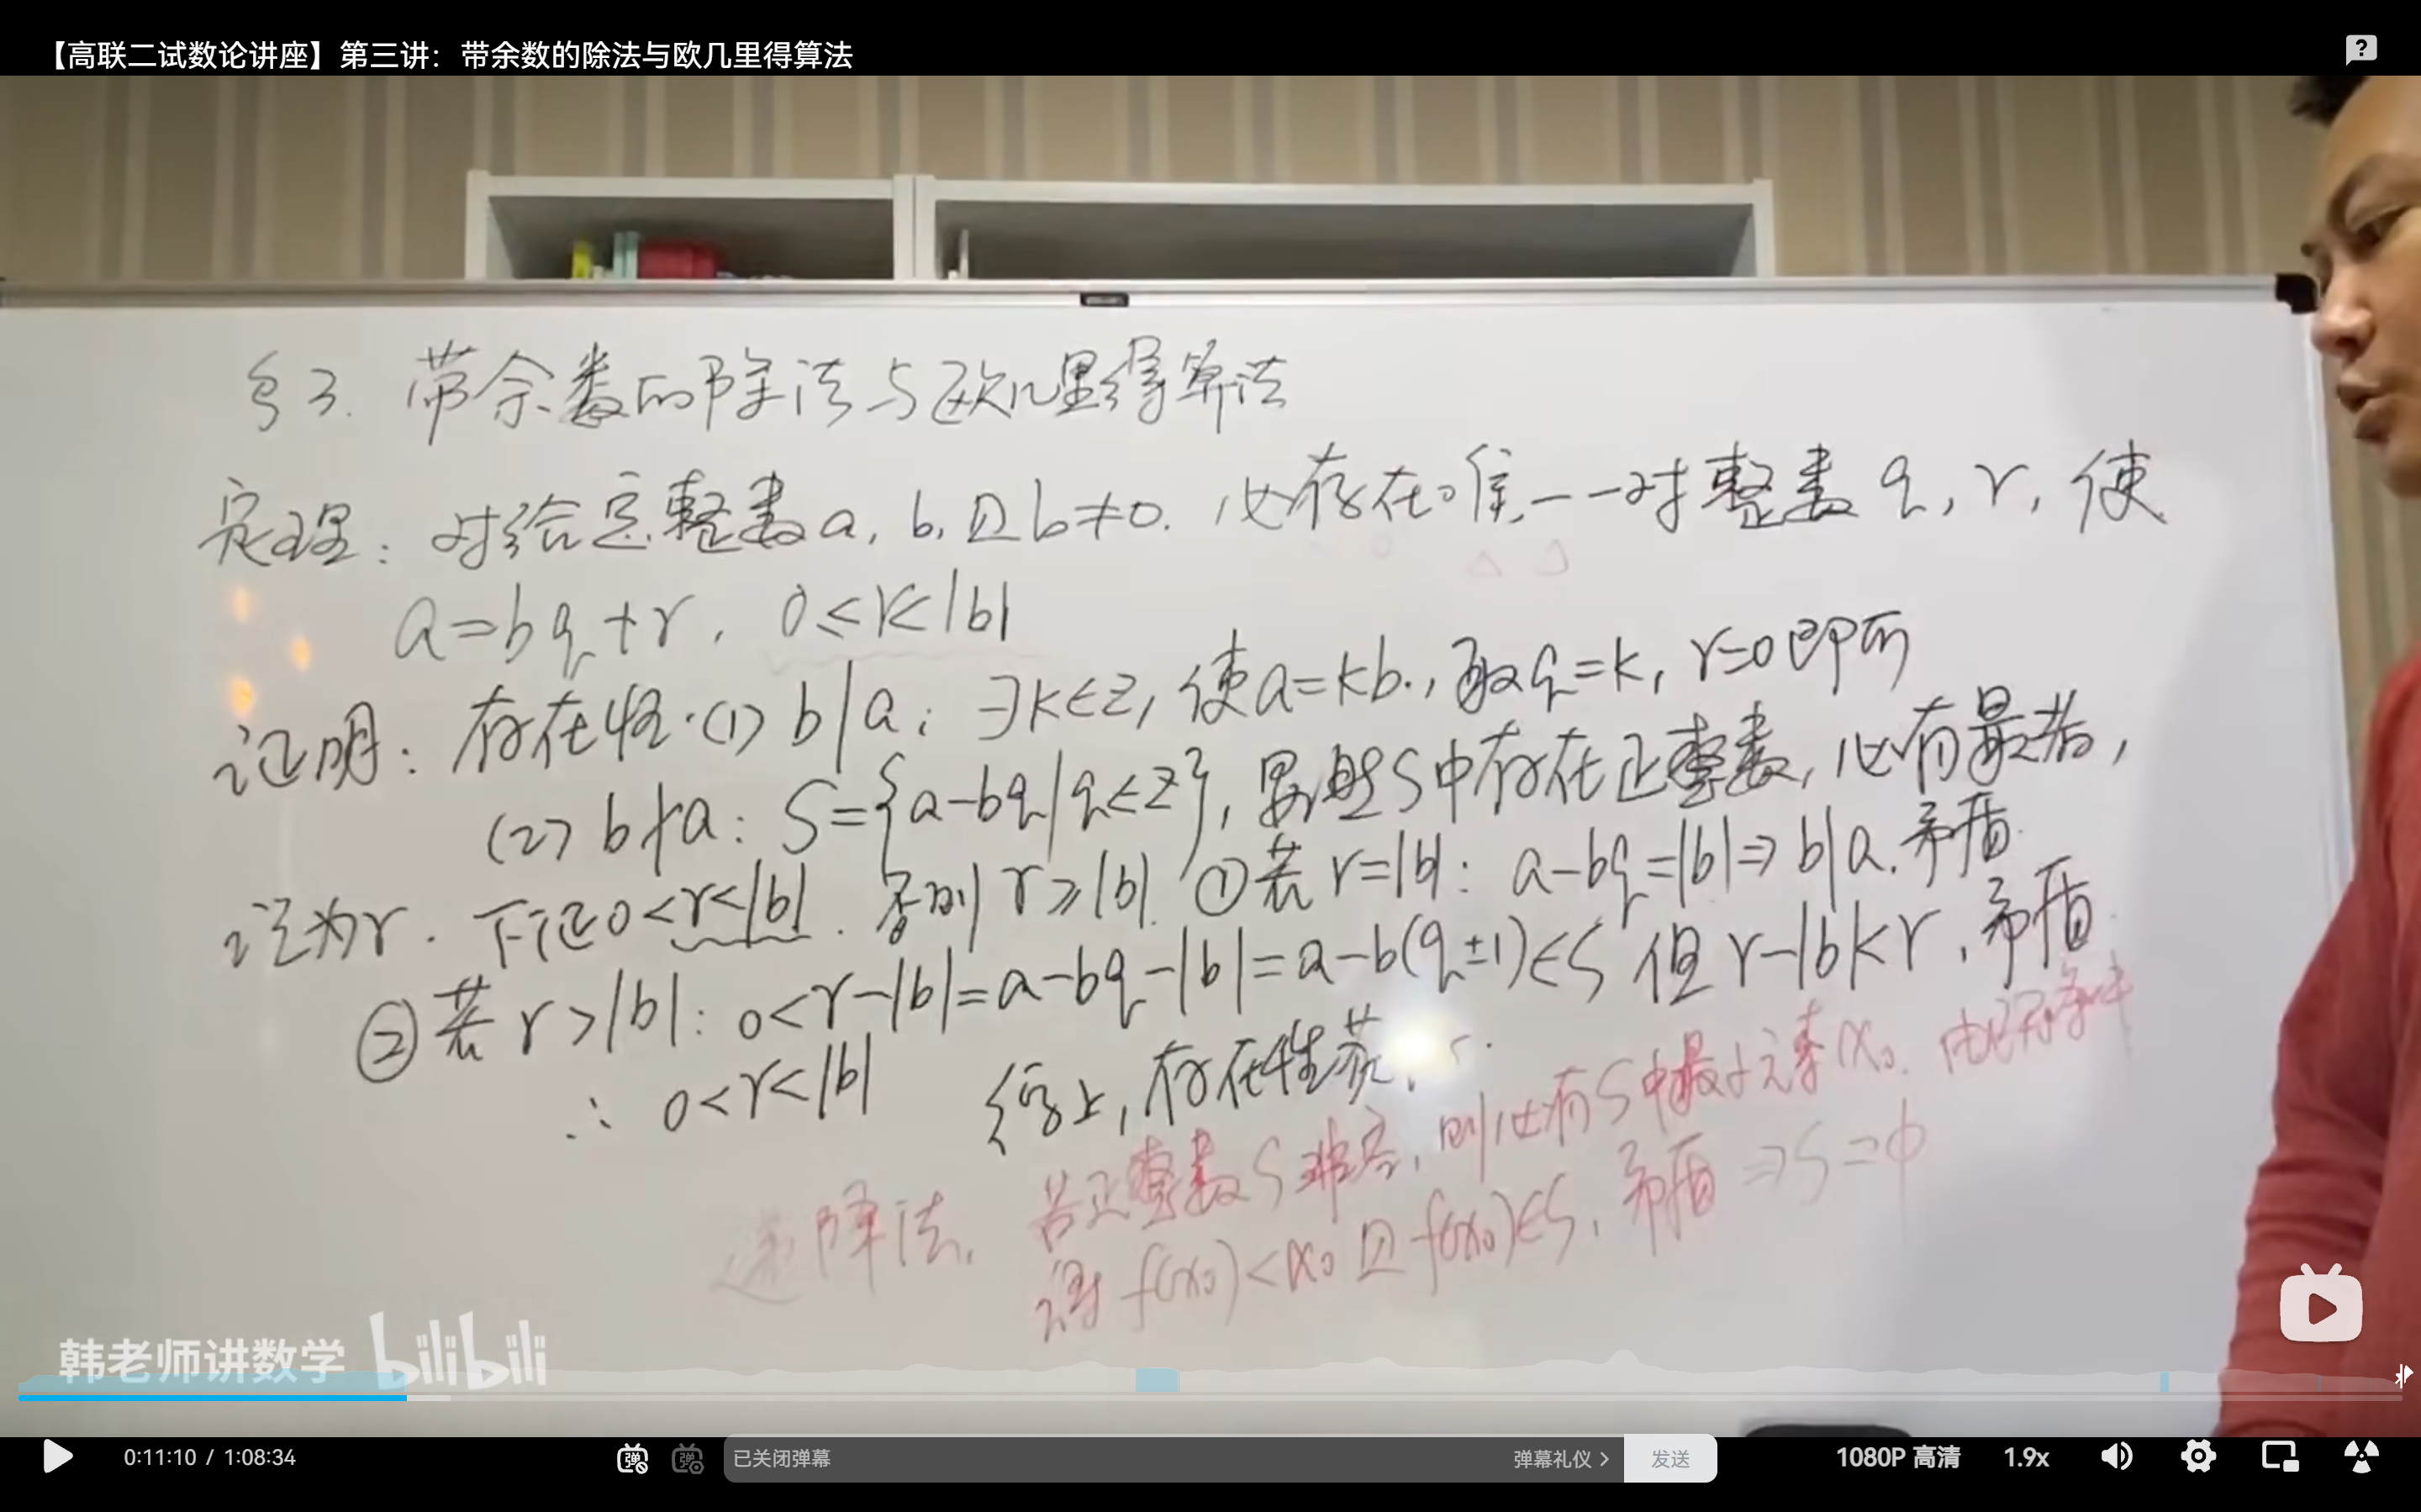 【高联二试数论讲座】第三讲：带余数的除法与欧几里得算法
§3. 带余数的除法与欧几里得算法
定理：对给定整数a, b, 且b≠0. 必存在唯一一对整数q, r, 使
a=bq+r, 0≤r<|b|
证明：存在性.(1) b|a: ∃k∈Z, 使a=kb., 取q=k, r=0即可
(2) b∤a: S={a-bq|q∈Z}, 显然S中存在正整数, 必有最小者,
记为r. 下证0<r<|b|. 否则r≥|b|. ①若r=|b|: a-bq=|b|⇒b|a.矛盾.
②若r>|b|: 0<r-|b|=a-bq-|b|=a-b(q±1)∈S 但r-|b|<r, 矛盾.
∴ 0<r<|b| 综上, 存在性获
递降法. 若正整数S非空, 则必有S中最小元素x₀. 由已知条件
得f(x₀)<x₀且f(x₀)∈S, 矛盾⇒S=φ
韩老师讲数学 bilibili
0:11:10 / 1:08:34 弹 弹 已关闭弹幕 弹幕礼仪 > 发送 1080P 高清 1.9x